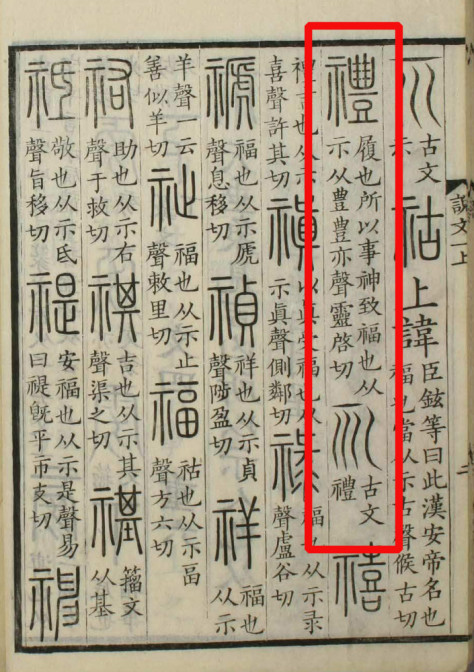 說文一上
二
𥘅古文示祜上諱臣鉉等曰此漢安帝名也福也當从示古聲候古切
禮履也所以事神致福也从示从豊豊亦聲靈啓切𠃞古文禮禧
禮吉也从示喜聲許其切禛以眞受福也从示眞聲側鄰切祿福也从示录聲盧谷切
禠福也从示虒聲息移切禎祥也从示貞聲陟盈切祥福也从示
羊聲一云善似羊切祉福也从示止聲敕里切福祜也从示畐聲方六切
祐助也从示右聲于救切祺吉也从示其聲渠之切禥籒文从基
祗敬也从示氐聲旨移切禔安福也从示是聲易曰禔旣平市支切神